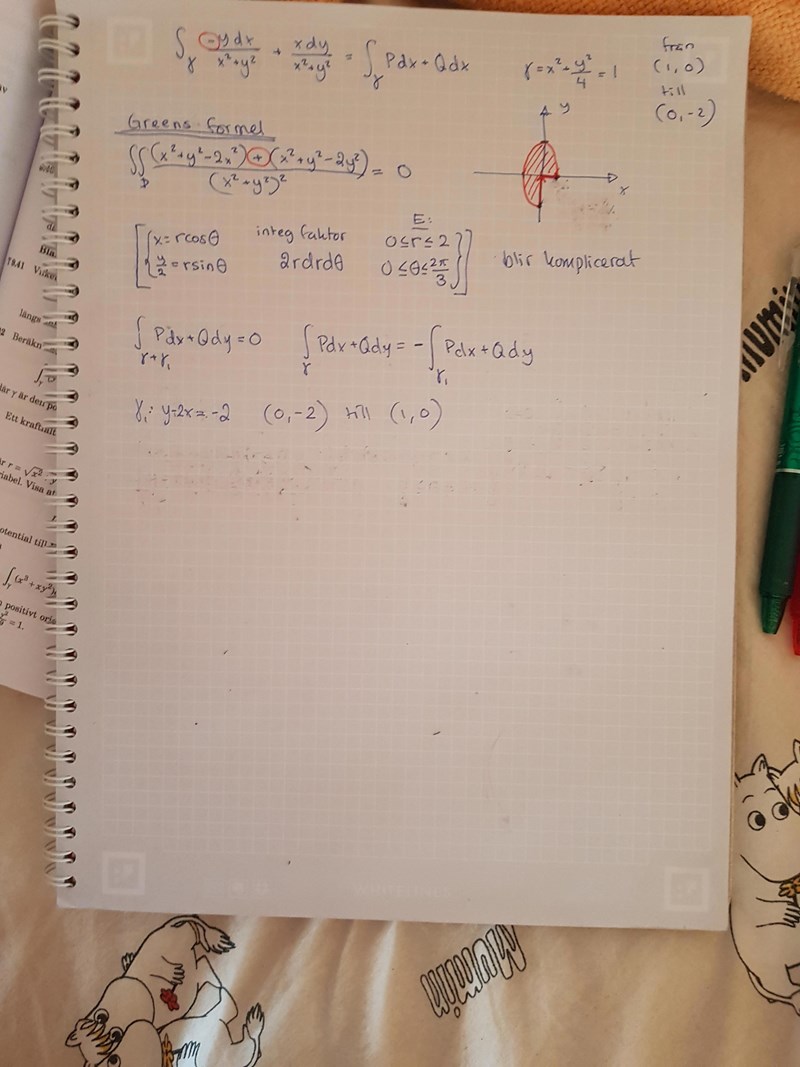 ∫_γ -ydx/(x²+y²) + xdy/(x²+y²) = ∫_γ Pdx+Qdx
γ=x²+y²/4=1
från
(1,0)
till
(0,-2)
Greens formel
∬_D ((x²+y²-2x²)+(x²+y²-2y²))/(x²+y²)² = 0
y
x
x=rcosθ
y/2=rsinθ
integ faktor
2rdrdθ
E:
0≤r≤2
0≤θ≤2π/3
blir komplicerat
∫_γ+γ₁ Pdx+Qdy=0 ∫_γ Pdx+Qdy = -∫_γ₁ Pdx+Qdy
γ₁: y-2x=-2 (0,-2) till (1,0)
längs
Beräkn
är γ är den po
Ett kraftfält
iabel. Visa at
otential till
∫_γ(x³+xy²)
positivt orie
= 1.
Mumin
Mumin